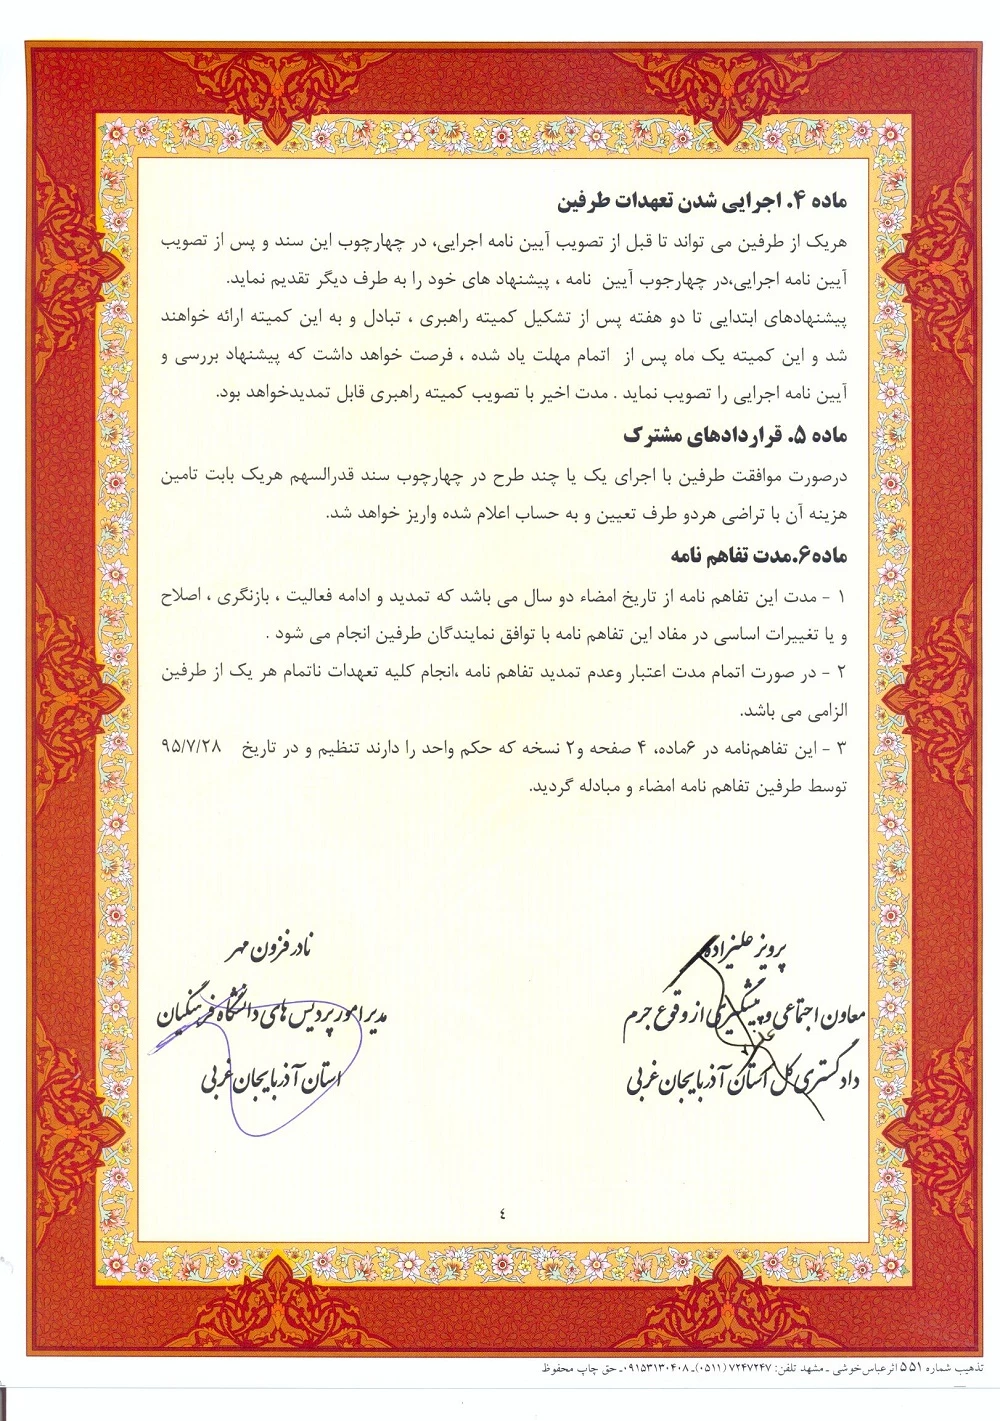 ماده ۴. اجرایی شدن تعهدات طرفین
هریک از طرفین می تواند تا قبل از تصویب آیین نامه اجرایی، در چهارچوب این سند و پس از تصویب
آیین نامه اجرایی،در چهارجوب آیین نامه ، پیشنهاد های خود را به طرف دیگر تقدیم نماید.
پیشنهادهای ابتدایی تا دو هفته پس از تشکیل کمیته راهبری ، تبادل و به این کمیته ارائه خواهند
شد و این کمیته یک ماه پس از اتمام مهلت یاد شده ، فرصت خواهد داشت که پیشنهاد بررسی و
آیین نامه اجرایی را تصویب نماید . مدت اخیر با تصویب کمیته راهبری قابل تمدیدخواهد بود.
ماده ۵. قراردادهای مشترک
درصورت موافقت طرفین با اجرای یک یا چند طرح در چهارچوب سند قدرالسهم هریک بابت تامین
هزینه آن با تراضی هردو طرف تعیین و به حساب اعلام شده واریز خواهد شد.
ماده۶.مدت تفاهم نامه
۱ - مدت این تفاهم نامه از تاریخ امضاء دو سال می باشد که تمدید و ادامه فعالیت ، بازنگری ، اصلاح
و یا تغییرات اساسی در مفاد این تفاهم نامه با توافق نمایندگان طرفین انجام می شود .
۲ - در صورت اتمام مدت اعتبار وعدم تمدید تفاهم نامه ،انجام کلیه تعهدات ناتمام هر یک از طرفین
الزامی می باشد.
۳ - این تفاهم‌نامه در ۶ماده، ۴ صفحه و۲ نسخه که حکم واحد را دارند تنظیم و در تاریخ ۹۵/۷/۲۸
توسط طرفین تفاهم نامه امضاء و مبادله گردید.
پرویز علیزاده
معاون اجتماعی و پیشگیری از وقوع جرم
دادگستری کل استان آذربایجان غربی
نادر فزون مهر
مدیر امور پردیس های دانشگاه فرهنگیان
استان آذربایجان غربی
٤
تذهیب شماره ۵۵۱ اثرعباس خوشی ـ مشهد تلفن: ۷۲۴۷۲۴۷ (۰۵۱۱)ـ ۰۹۱۵۳۱۳۰۴۰۸ـ حق چاپ محفوظ